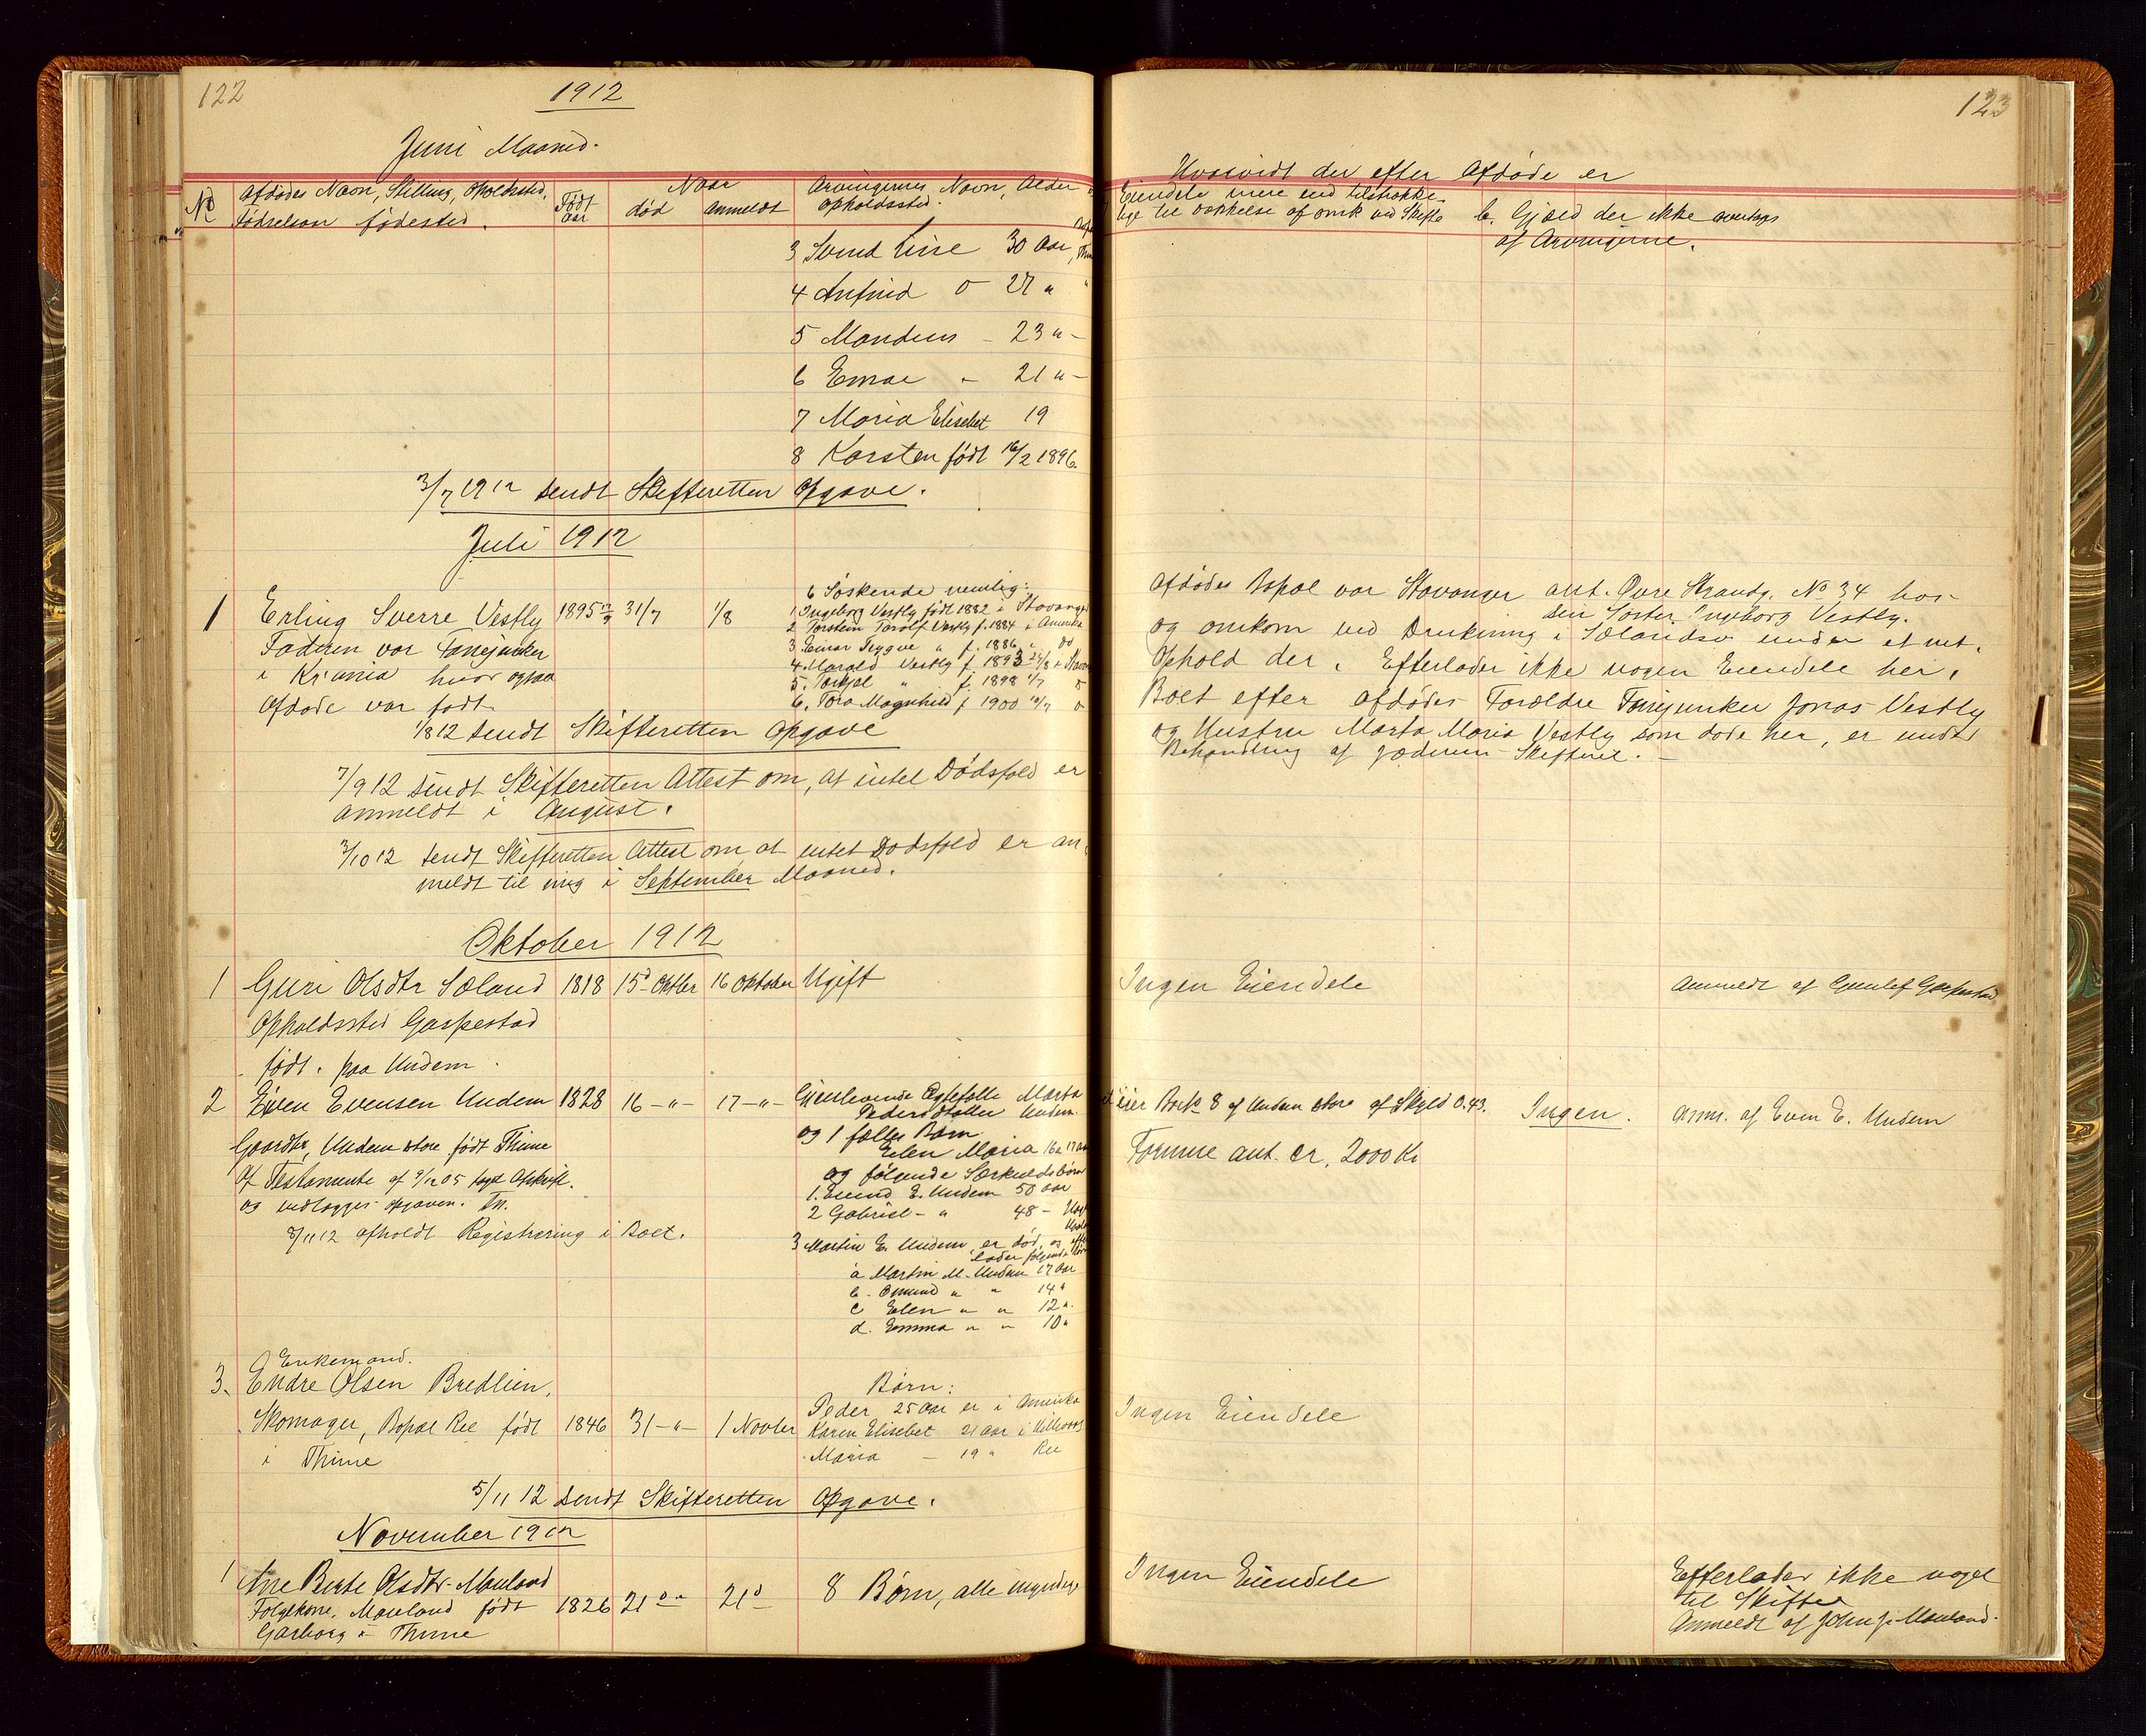 122
1912
Juni Maaned.
No
Afdødes Navn, Stilling, Opholdssted,
Fødselsaar fødested.
Født
aar
Naar
død
anmeldt
Arvingernes Navn, Alder
Opholdssted.
3 Svend Line 30 Aar,
4 Arfind 27 "
5 Mandius - 23 " -
6 Einar - 21 " -
7 Maria Elisebet 19
8 Karsten født 16/2 1896
3/7 1912 sendt Skifteretten Opgave.
Juli 1912
1 Erling Sverre Vestly 1895 31/7 1/8
Faderen var Fanejunker
i Kr.ania hvor ogsaa
Afdøde var født.
6 Søskende nemlig:
1 Ingeborg Vestly født 1882 i Stavanger
2 Torstein Torolf Vestly f. 1884 i Amerika
3 Einar Trygve " f. 1886 " do
4. Harald Vestly f 1893 24/8 i Stav
5. Torkjel " f. 1898 1/7
6. Tora Magnhild f 1900 10/7
1/8 12 sendt Skifteretten Opgave
7/9 12 sendt Skifteretten Attest om, at intet Dødsfald er
anmeldt i August.
3/10 12 sendt Skifteretten Attest om at intet Dødsfald er an
meldt til mig i September Maaned.
Oktober 1912
1 Guri Olsdtr Søland 1818 15d Oktbr 16 Oktober Ugift
Opholdssted Gaspestad
født. paa Undem
2 Even Evensen Undem 1828 16 - " - 17 - " -
Gaardbr, Undem store født Thime
Af Testamente af 9/12 05 tagt Afskrift.
og vedlægges opgaven. Tn.
8/11 12 afholdt Registrering i Boet.
Gjenlevende Ægtefælle Marta
Pedersdatter Undem.
og 1 fælles Barn
Elen Maria 16 a 17 aar
og følgende Særkuldsbørn
1. Eivind E. Undem 50 aar
2 Gabriel - " 48 -
3 Martin E. Undem, er død, og efter
lader følgende Børn
a Martin M. Undem 17 Aar
b. Omund " " 14 "
c Elen " " 12 "
d. Emma " " 10 "
Enkemand.
3. Endre Olsen Bredlien,
Skomager, Bopæl Ree født 1846 31 - " - 1 Novbr
i Thime
Børn:
Peder 25 Aar er i Amerika
Karen Elisebet 21 aar i
Maria - 19 " Ree
5/11 12 sendt Skifteretten Opgave.
November 1912
1 Ane Berte Olsdtr. Mauland
Følgekone, Mauland født 1826 21 d " 21 d
Garborg i Thime
8 Børn, alle myndige
123
Hvorvidt der efter Afdøde er
Eiendele mere end tilstrække-
lige til Dækkelse af omk. ved Skifte
b. Gjæld der ikke overtages
af Arvingerne.
Afdødes Bopæl var Stavanger ant. Øvre Strandg. No 34 hos
sin Søster Ingeborg Vestly.
og omkom ved Drukning i Sælandsv under et mt.
Ophold der. Efterlader ikke nogen Eiendele her.
Boet efter afdødes Forældre Fanejunker Jonas Vestly
og Hustru Marta Maria Vestly som døde her, er under
Behandling af Jæderens Skifteret. -
Ingen Eiendele
Anmeldt af Gunlef Gaspestad
eier Brk 8 af Undem store af Skyld 0.43. Ingen. anm. af Even E. Undem
Formue ant. cr. 2000 Kr
Ingen Eiendele
Ingen Eiendele
Efterlader ikke noget
til Skifte
Anmeldt af John J. Mauland.